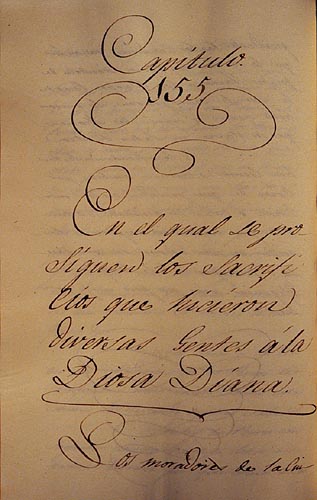 Capitulo.
155
En el qual se pro-
siguen los Sacrifi
cios que hicieron
diversas Gentes á la
Diosa Diana.
Los moradores de la Ciu-